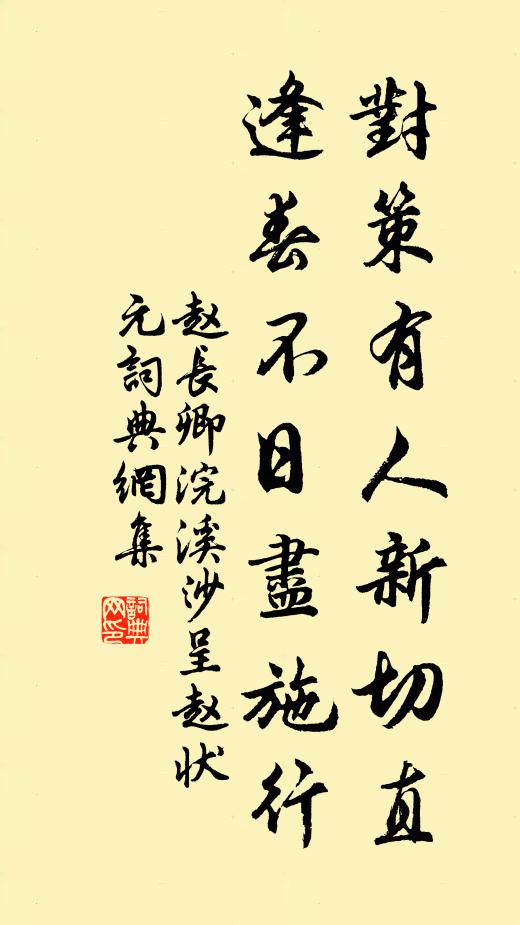 對策有人新切直
逢春不日盡施行
赵長卿浣溪沙呈赵状
元詞典網集
詞典
网印